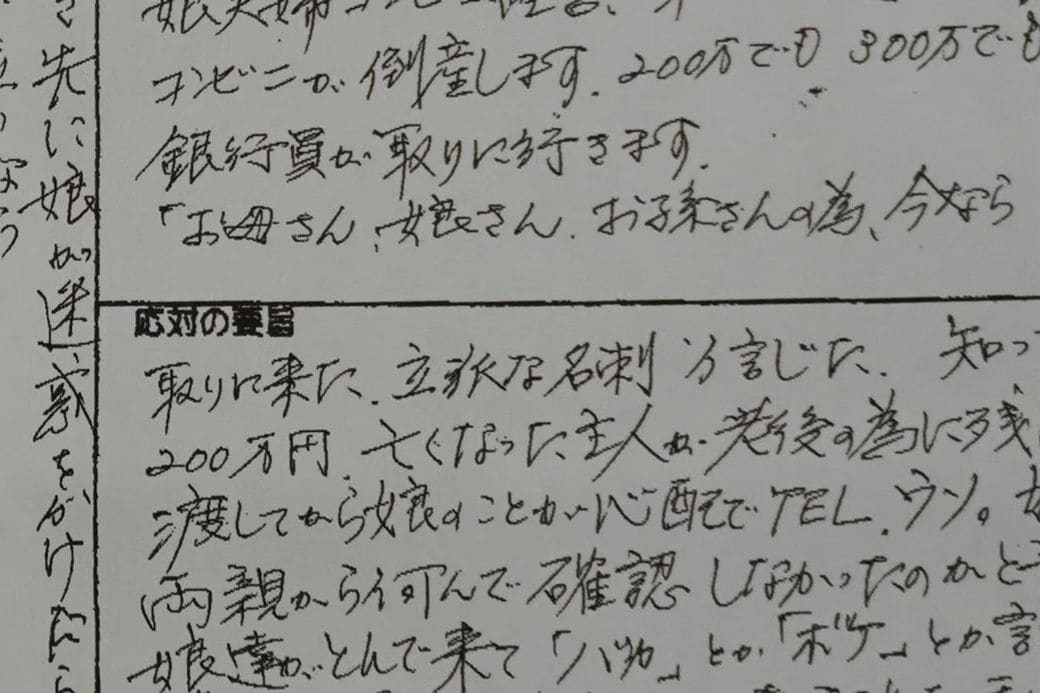 コンビニが倒産します。200万でも300万でも
銀行員が取りに行きます。
「お母さん、娘さん、お子系さんの為、今なら
応対の要旨
取りに来た。立派な名刺 方言じた。 知っ
200万円。亡くなった主人が老後の為に残
渡してから娘のことが心配でTEL。ウソ。
両親から何んで確認しなかったのかと
娘達がとんで来て「バカ」とか「ボケ」とか言
先に娘が迷惑をかけたら